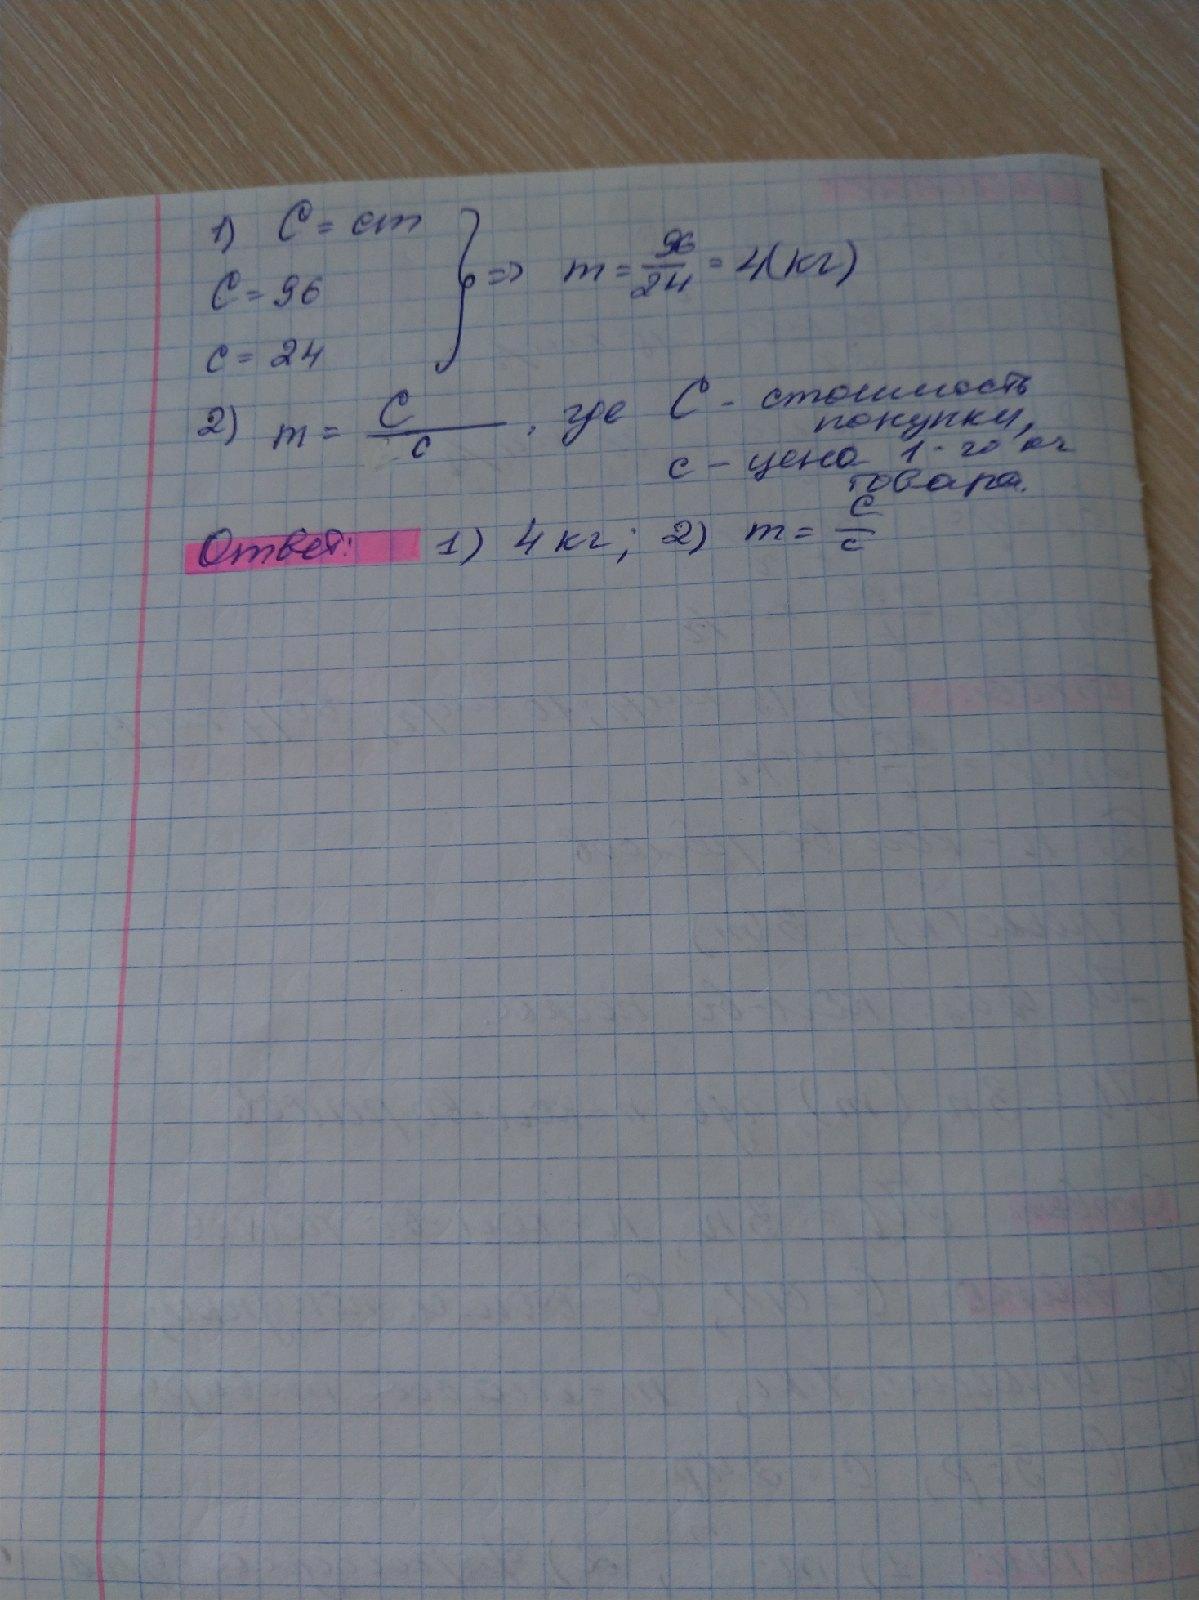 1) C = cm
C = 96
c = 24
} => m = 96/24 = 4(кг)
2) m = C/c, где C - стоимость покупки,
c - цена 1-го кг товара.
Ответ: 1) 4 кг; 2) m = C/c